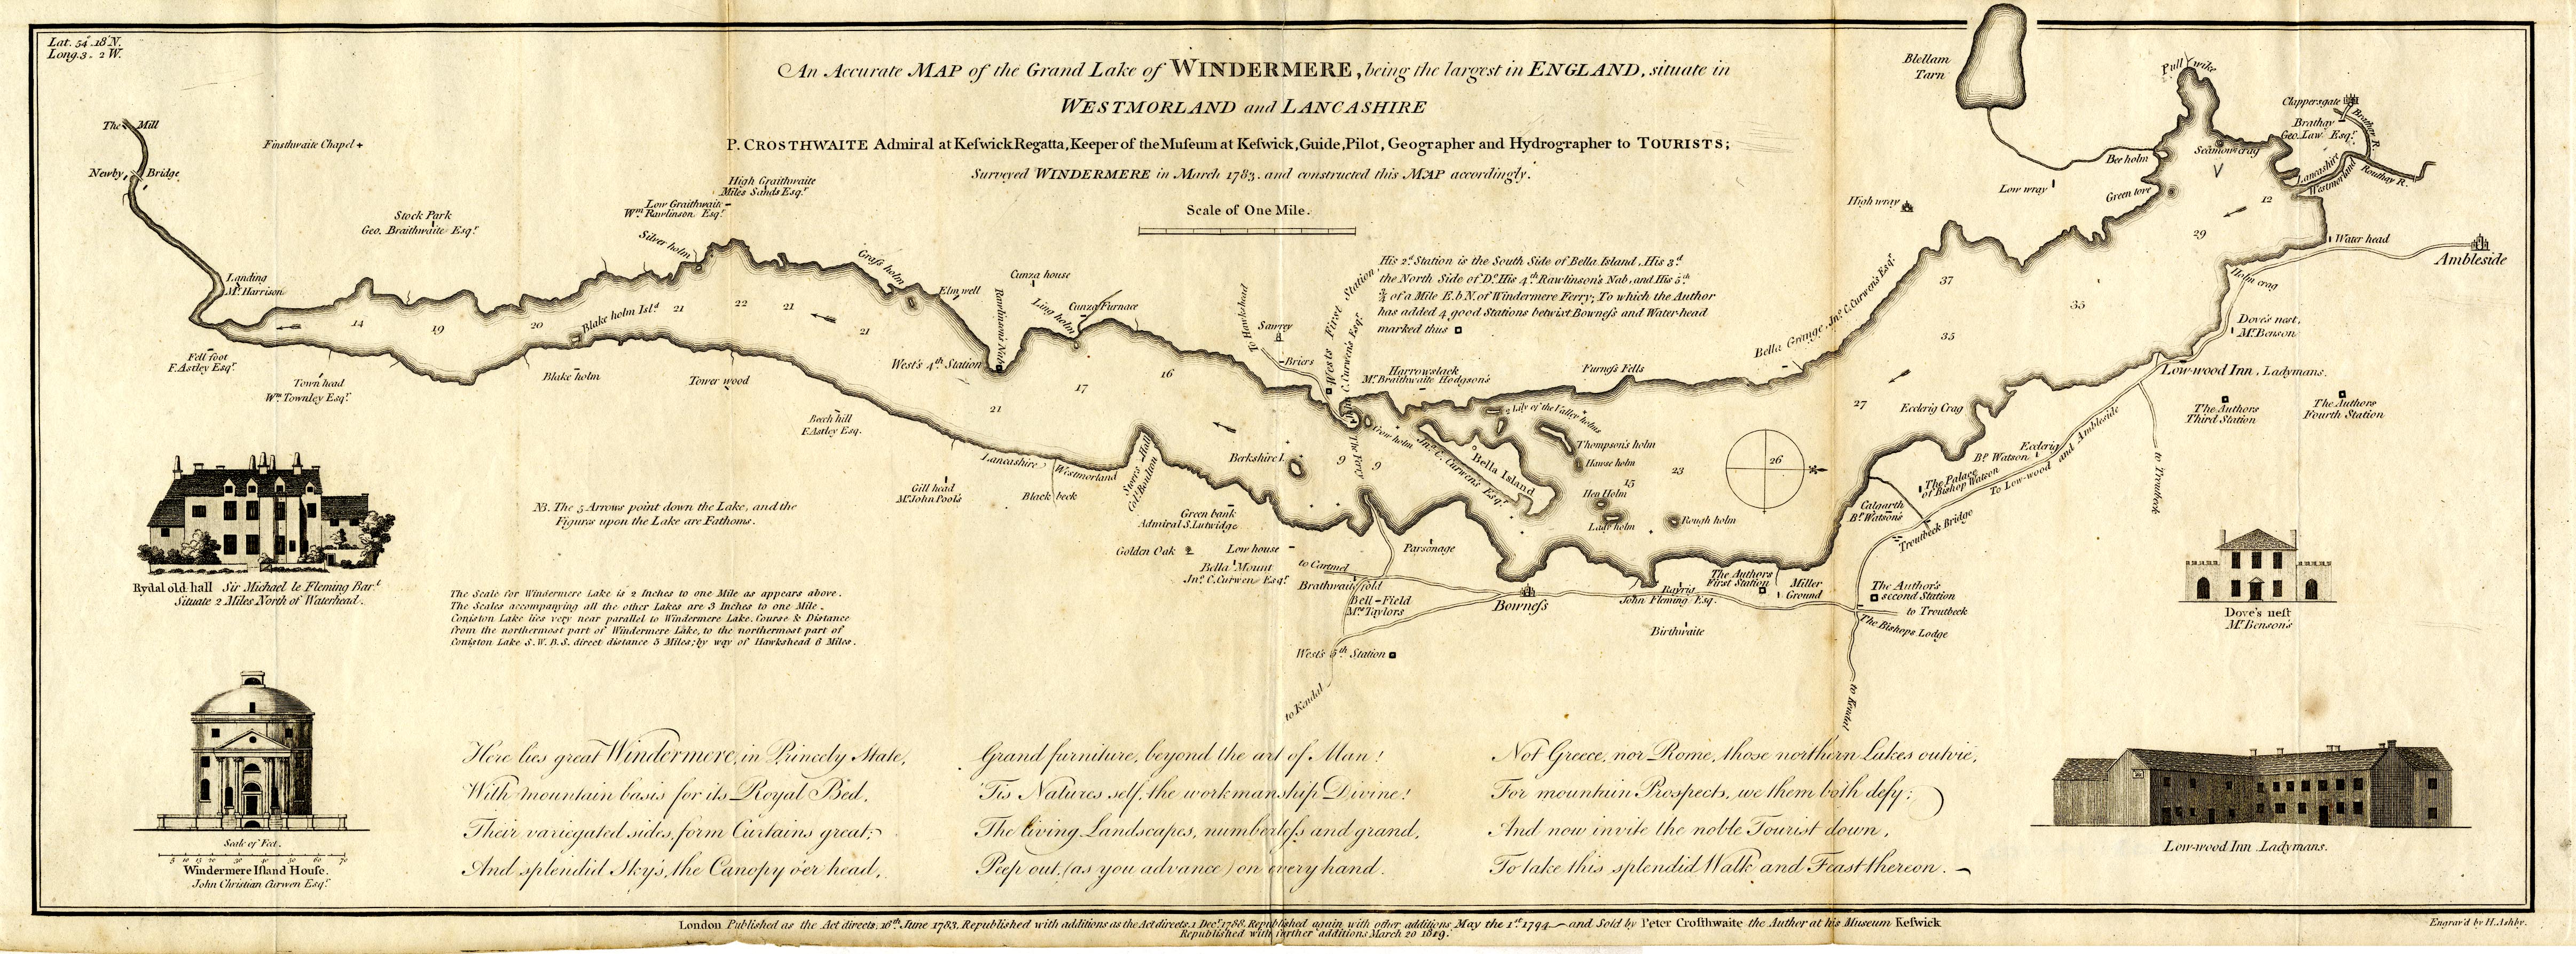 Lat. 54°.18'N.
Long.3. 2 W.
An Accurate MAP of the Grand Lake of WINDERMERE, being the largest in ENGLAND, situate in
WESTMORLAND and LANCASHIRE
P. CROSTHWAITE Admiral at Keſwick Regatta, Keeper of the Muſeum at Keſwick, Guide, Pilot, Geographer and Hydrographer to TOURISTS;
Surveyed WINDERMERE in March 1783. and constructed this MAP accordingly.
Scale of One Mile.
His 2d Station is the South Side of Bella Island, His 3d
the North Side of Do. His 4th Rawlinson's Nab, and His 5th
¾ of a Mile E.b N. of Windermere Ferry; To which the Author
has added 4 good Stations betwixt Bowneſs and Water-head
marked thus
The Mill
Newby Bridge
Finsthwaite Chapel +
Stock Park
Geo. Braithwaite Esqr.
Landing
Mr. Harrison
High Graithwaite
Miles Sands Esqr.
Low Graithwaite
Wm Rawlinson Esqr.
Silver holm
Graſs holm
Elm well
Rawlinsons Nab
Cunza house
Ling holm
Cunza Furnace
To Hawkshead
Sawrey
Briers
West's First Station
Jno. C. Curwen's Esqr.
Harrowslack
Mr. Braithwaite Hodgson's
Furneſs Fells
Bella Grange, Jno. C. Curwen's Esqr.
High wray
Low wray
Blellam
Tarn
Pull wike
Bee holm
Green tore
Seamew crag
Clappersgate
Brathay
Geo. Law Esqr.
Brathay R.
Routhay R.
Lancashire
Westmorland
Water head
Ambleside
Holm crag
Dove's nest,
Mr. Benson
Low-wood Inn, Ladymans.
The Authors
Third Station
The Authors
Fourth Station
to Troutbeck
Ecclerig Crag
Ecclerig
Bp. Watson
The Palace
of Bishop Watson
To Low-wood and Ambleside
Calgarth
Bp. Watson's
Troutbeck Bridge
The Author's
second Station
to Troutbeck
The Bishops Lodge
to Kendal
Miller
Ground
The Authors
First Station
Rayrig
John Fleming Esq.
Birthwaite
Bowneſs
Parsonage
14
19
20
Blake holm Isld.
21
22
21
21
21
17
16
9
9
The Ferry
Crow holm
Jno. C. Curwen's Esqr.
Bella Island
2 Lily of the Valley holms
Thompson's holm
Hawse holm
15
Hen Holm
Lady holm
Rough holm
23
26
27
35
37
35
29
12
Berkshire I.
Fell foot
F. Astley Esqr.
Town head
Wm. Townley Esqr.
Blake holm
Tower wood
Beech hill
F. Astley Esq.
West's 4th Station
Gill head
Mr. John Pool's
Lancashire
Westmorland
Black beck
Storrs Hall
Col. Boulton
Green bank
Admiral S. Lutwidge
Golden Oak
Low house
Bella Mount
Jno. C. Curwen Esqr.
to Cartmel
Bell-Field
Mrs Taylors
West's 5th Station
to Kendal
NB. The 5 Arrows point down the Lake, and the
Figures upon the Lake are Fathoms.
The Scale for Windermere Lake is 2 Inches to one Mile as appears above.
The Scales accompanying all the other Lakes are 3 Inches to one Mile.
Coniston Lake lies very near parallel to Windermere Lake. Course & Distance
from the northermost part of Windermere Lake, to the northermost part of
Coniston Lake S.W.B.S. direct distance 5 Miles; by way of Hawkshead 6 Miles.
Rydal old hall Sir Michael le Fleming Bart.
Situate 2 Miles North of Waterhead.
Scale of Feet.
5 10 15 20 30 40 50 60 70
Windermere Iſland Houſe.
John Christian Curwen Esqr.
Dove's neſt
Mr. Benson's
Low-wood Inn Ladymans.
Here lies great Windermere, in Princely State,
With mountain basis for its Royal Bed,
Their variegated sides, form Curtains great;
And splendid Sky's, the Canopy o'er head,
Grand furniture, beyond the art of Man!
Tis Natures self, the workmanship Divine!
The living Landscapes, numberleſs and grand,
Peep out, (as you advance) on every hand.
Not Greece, nor Rome, those northern Lakes outvie,
For mountain Prospects, we them both defy;
And now invite the noble Tourist down,
To take this splendid Walk and Feast thereon.
London Published as the Act directs, 16th June 1783. Republished with additions as the Act directs, 1 Decr. 1788. Republished again with other additions May the 1st 1794 and Sold by Peter Croſthwaite the Author at his Museum Keſwick
Republished with further additions March 20 1819.
Engrav'd by H. Ashby.